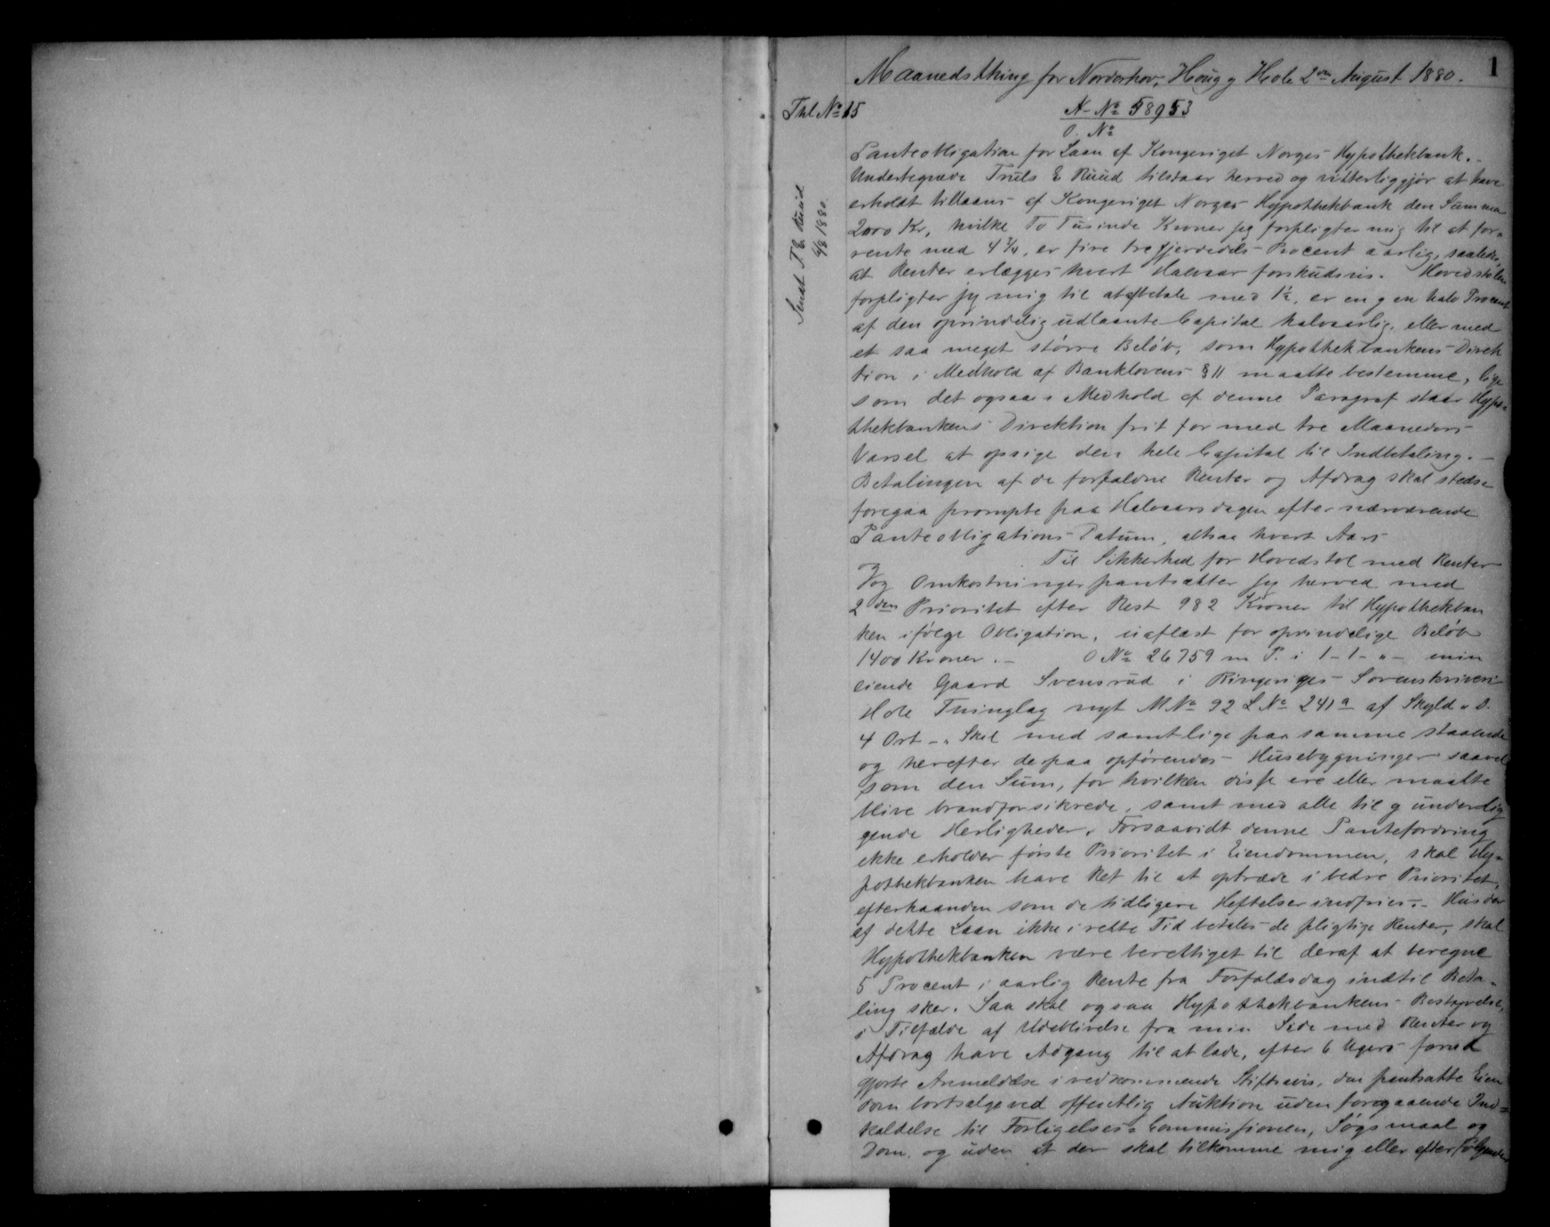 1
Maanedsthing for Norderhov, Houg og Hole 2den August 1880.
Thl. No 15
A. No 58953
O. No
Sendt T. E. Ruud
4/8 1880.
Panteobligation for Laan af Kongeriget Norges Hypothekbank.
Undertegnede Truls E Ruud tilstaar herved og vitterliggjør at have
erholdt tillaans af Kongeriget Norges Hypothekbank den Summa
2000 Kr, hvilke To Tusinde Kroner jeg forpligter mig til at for-
rente med 4 3/4, er fire tre fjerdedels Procent aarlig, saaledes
at Renter erlægges hvert Halvaar forskudsvis. Hovedstolen
forpligter jeg mig til at afbetale med 1½, er en og en halv Procent
af den oprindelig udlaante Capital halvaarlig, eller med
et saa meget større Beløb, som Hypothekbankens Direk
tion i Medhold af Banklovens § 11 maatte bestemme, lige
som det ogsaa i Medhold af denne Paragraf staar Hypo-
thekbankens Direktion frit for med tre Maaneders
Varsel at opsige den hele Capital til Indbetaling. -
Betalingen af de forfaldne Renter og Afdrag skal stedse
foregaa prompte paa Halvaarsdagen efter nærværende
Panteobligations Datum, altsaa hvert Aars
og
Til Sikkerhed for Hovedstol med Renter
og Omkostninger pantsætter jeg herved med
2den Prioritet efter Rest 982 Kroner til Hypothekban
ken ifølge Obligation, uaflæst for oprindelige Beløb
1400 Kroner. - O No 26759 m P. i 1-1-"- min
eiende Gaard Svensrud i Ringeriges Sorenskriveri
Hole Thinglag nyt M No 92 L No 241a af Skyld " D.
4 Ort - " Skil med samtlige paa samme staaende
og herefter derpaa opførendes Husebygninger saavel
som den Sum, for hvilken disse ere eller maatte
blive brandforsikrede, samt med alle til og underlig
gende Herligheder. Forsaavidt denne Pantefordring
ikke erholder første Prioritet i Eiendommen, skal Hy-
pothekbanken have Ret til at optræde i bedre Prioritet,
efterhaanden som de tidligere Heftelser indfries. - Hvis der
af dette Laan ikke i rette Tid betales de pligtige Renter, skal
Hypothekbanken være berettiget til deraf at beregne
5 Procent i aarlig Rente fra Forfaldsdag indtil Beta-
ling sker. Saa skal ogsaa Hypothekbankens Bestyrelse,
i Tilfælde af Udeblivelse fra min Side med Renter og
Afdrag have Adgang til at lade, efter 6 Ugers forud
gjorte Anmeldelse i vedkommende Stiftsavis, den pantsatte Eien
dom bortsælge ved offentlig Auktion uden foregaaende Ind-
kaldelse til Forligelses-Commissionen, Søgsmaal og
Dom, og uden at der skal tilkomme mig eller efterfølgende